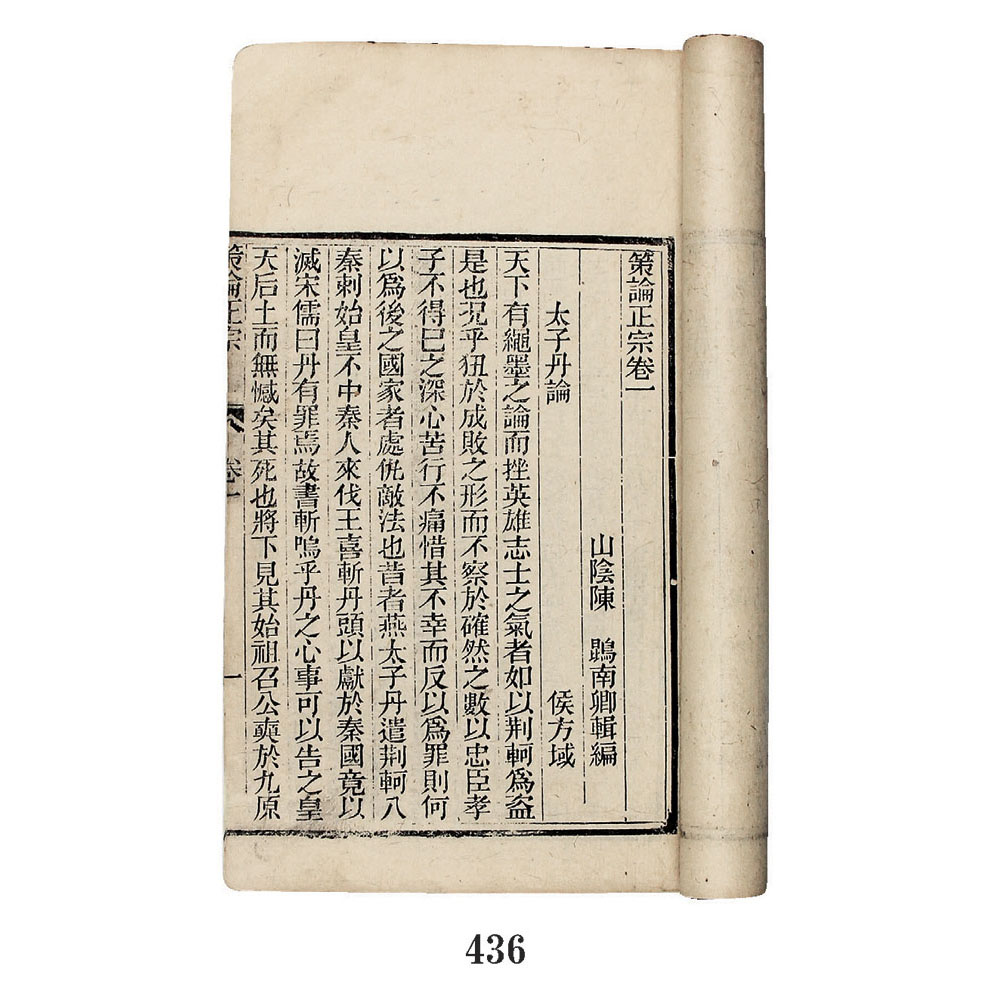 策論正宗卷一
山陰陳　鵾南卿輯編
太子丹論　侯方域
天下有繩墨之論而挫英雄志士之氣者如以荆軻爲盜
是也况乎狃於成敗之形而不察於確然之數以忠臣孝
子不得已之深心苦行不痛惜其不幸而反以爲罪則何
以爲後之國家者處仇敵法也昔者燕太子丹遣荆軻入
秦刺始皇不中秦人來伐王喜斬丹頭以獻於秦國竟以
滅宋儒曰丹有罪焉故書斬嗚乎丹之心事可以告之皇
天后土而無憾矣其死也將下見其始祖召公奭於九原
策論正宗　卷一　一
436